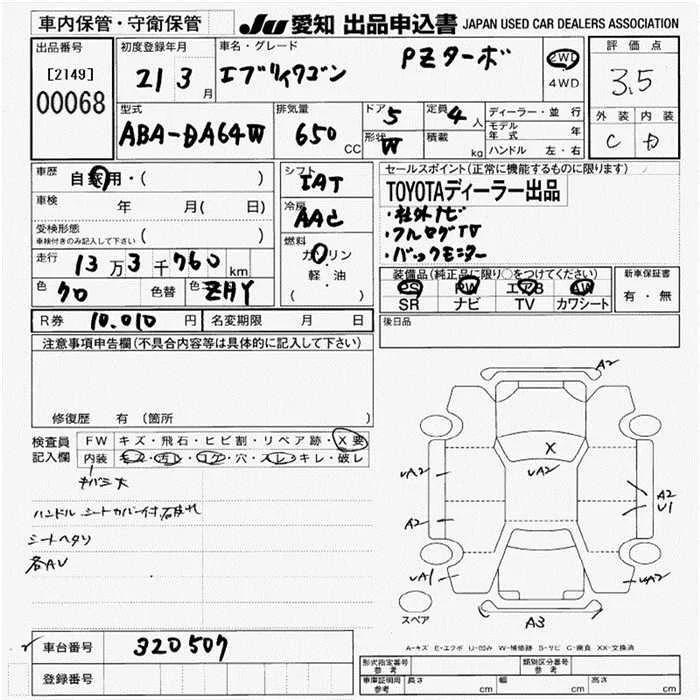 車内保管・守衛保管
JU 愛知 出品申込書 JAPAN USED CAR DEALERS ASSOCIATION
出品番号
[2149]
00068
初度登録年月
21 3 月
車名・グレード
エブリィワゴン PZターボ
2WD
4WD
評価点
3.5
外装 内装
C D
型式
ABA-DA64W
排気量
650 CC
ドア 5
形状 W
定員 4 人
積載 kg
ディーラー・並行
モデル年式 年
ハンドル 左・右
車歴
自家用・( )
車検 年 月( 日)
受検形態
車検付きのみ記入して下さい ( )
走行 13万3千760km
色 クロ 色替 色 ZHY
シフト
IAT
冷房
AAC
燃料
ガソリン
軽・油
( )
セールスポイント(正常に機能するものに限ります)
TOYOTAディーラー出品
・社外ナビ
・フルセグTV
・バックモニター
装備品(純正品に限り○をつけてください)
PS PW エアB AW
SR ナビ TV カワシート
新車保証書
有・無
R券 10.010 円 名変期限 月 日
後日品
注意事項申告欄(不具合内容等は具体的に記入して下さい)
修復歴 有 (箇所 )
検査員記入欄
FW キズ・飛石・ヒビ割・リペア跡・X要
内装 キズ・汚レ・コゲ・穴・スレ・キレ・破レ
ハンドル シートカバー付
シートヘタリ
各AU
A2
X
UA2
UA2
A2
A2
U1
UA1
UA2
A3
スペア
A-キズ E-エクボ U-凹み W-補修跡 S-サビ C-腐食 XX-交換済
車台番号 320507
登録番号
形式指定番号 参考
類別区分番号 参考
車庫証明用 参考 長さ cm 幅 cm 高さ cm